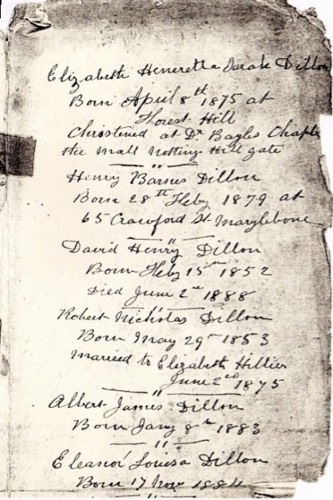 Elizabeth Heneretta Sarah Dillon
Born April 8th 1875 at
Forest Hill
Christened at Dr Bagles Chaple
the Mall Notting Hill gate
"
Henry Barnes Dillon
Born 28th Feby 1879 at
65 Crawford St Marylebone
"
David Henry Dillon
Born Feby 15th 1852
Died June 2nd 1888
Robert Nicholas Dillon
Born May 29th 1853
Married to Elizabeth Hillier
June 2nd 1875
"
Albert James Dillon
Born Jany 8th 1883
"
Eleanor Louisa Dillon
Born 17 Nov 1884